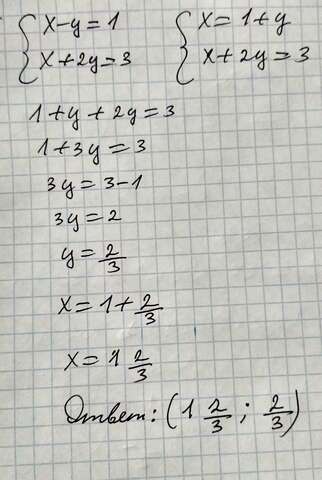 {x-y=1 {x=1+y
{x+2y=3 {x+2y=3
1+y+2y=3
1+3y=3
3y=3-1
3y=2
y=2/3
x=1+2/3
x=1 2/3
Ответ: (1 2/3; 2/3)